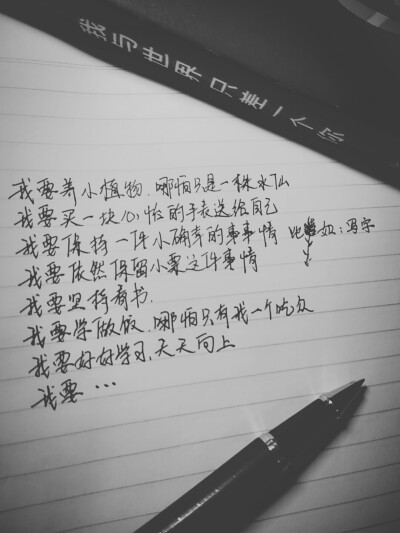 我与世界只差一个你
我要养小植物.哪怕只是一株水仙
我要买一块心怡的手表送给自己
我要保持一件小确幸的事情 比如:写字
我要依然保留小栗这件事情
我要坚持看书.
我要学做饭.哪怕只有我一个吃众
我要好好学习,天天向上
我要...